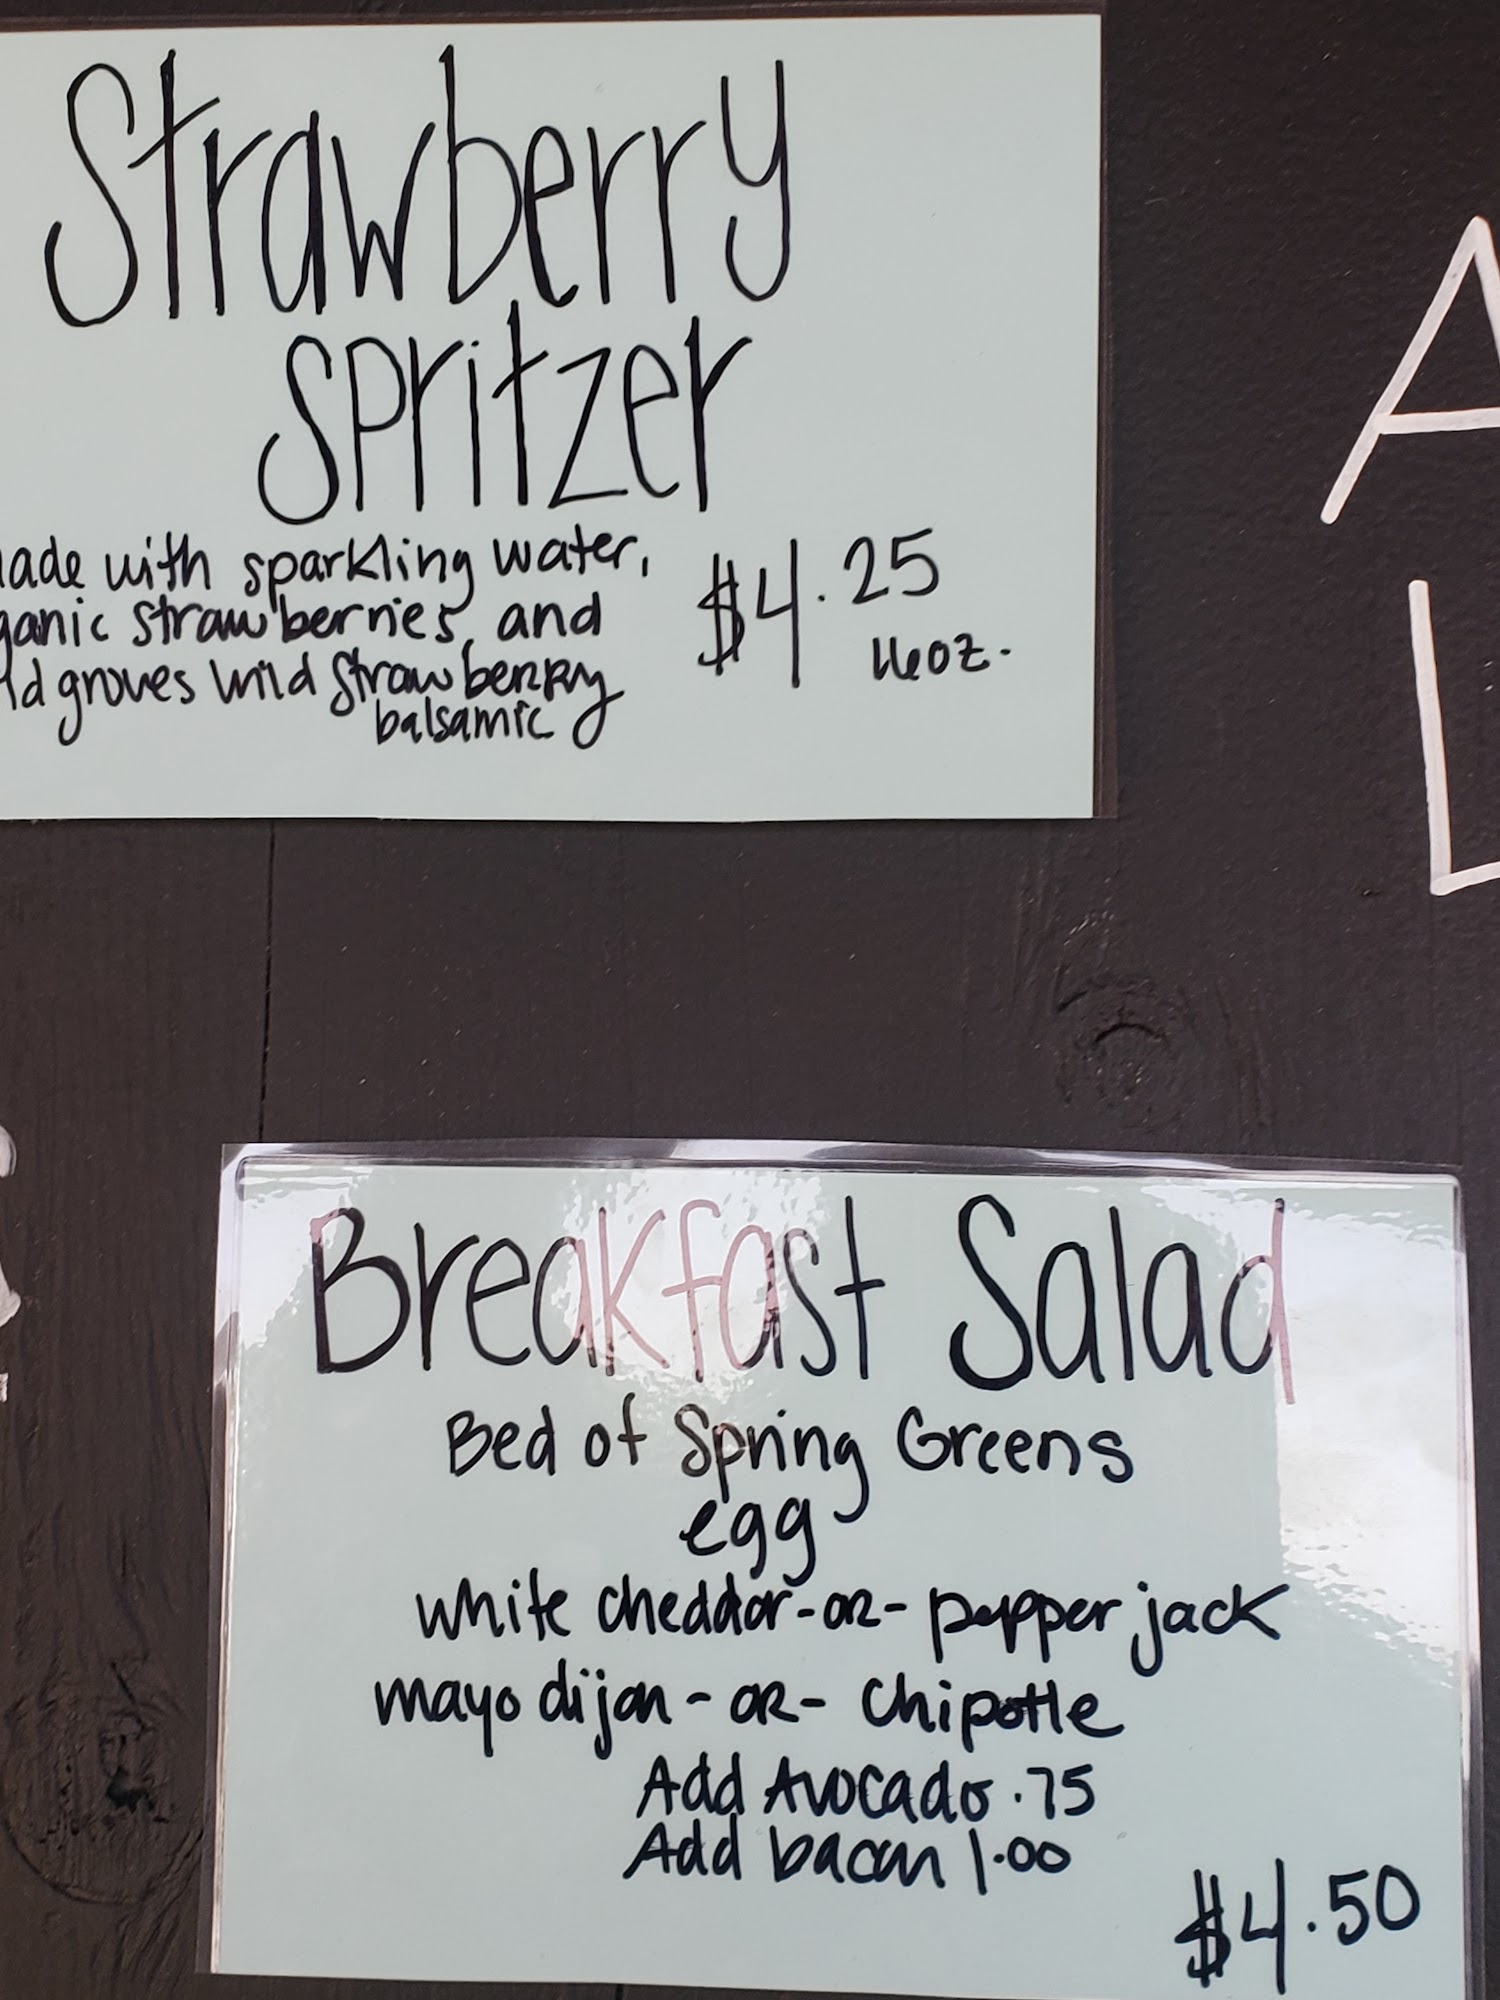 Strawberry
Spritzer
made with sparkling water,
organic strawberries, and
groves wild strawberry
balsamic
$4.25
16oz.
A
L
Breakfast Salad
Bed of Spring Greens
egg
white cheddar -or- pepper jack
mayo dijon - or - Chipotle
Add Avocado .75
Add bacon 1.00
$4.50